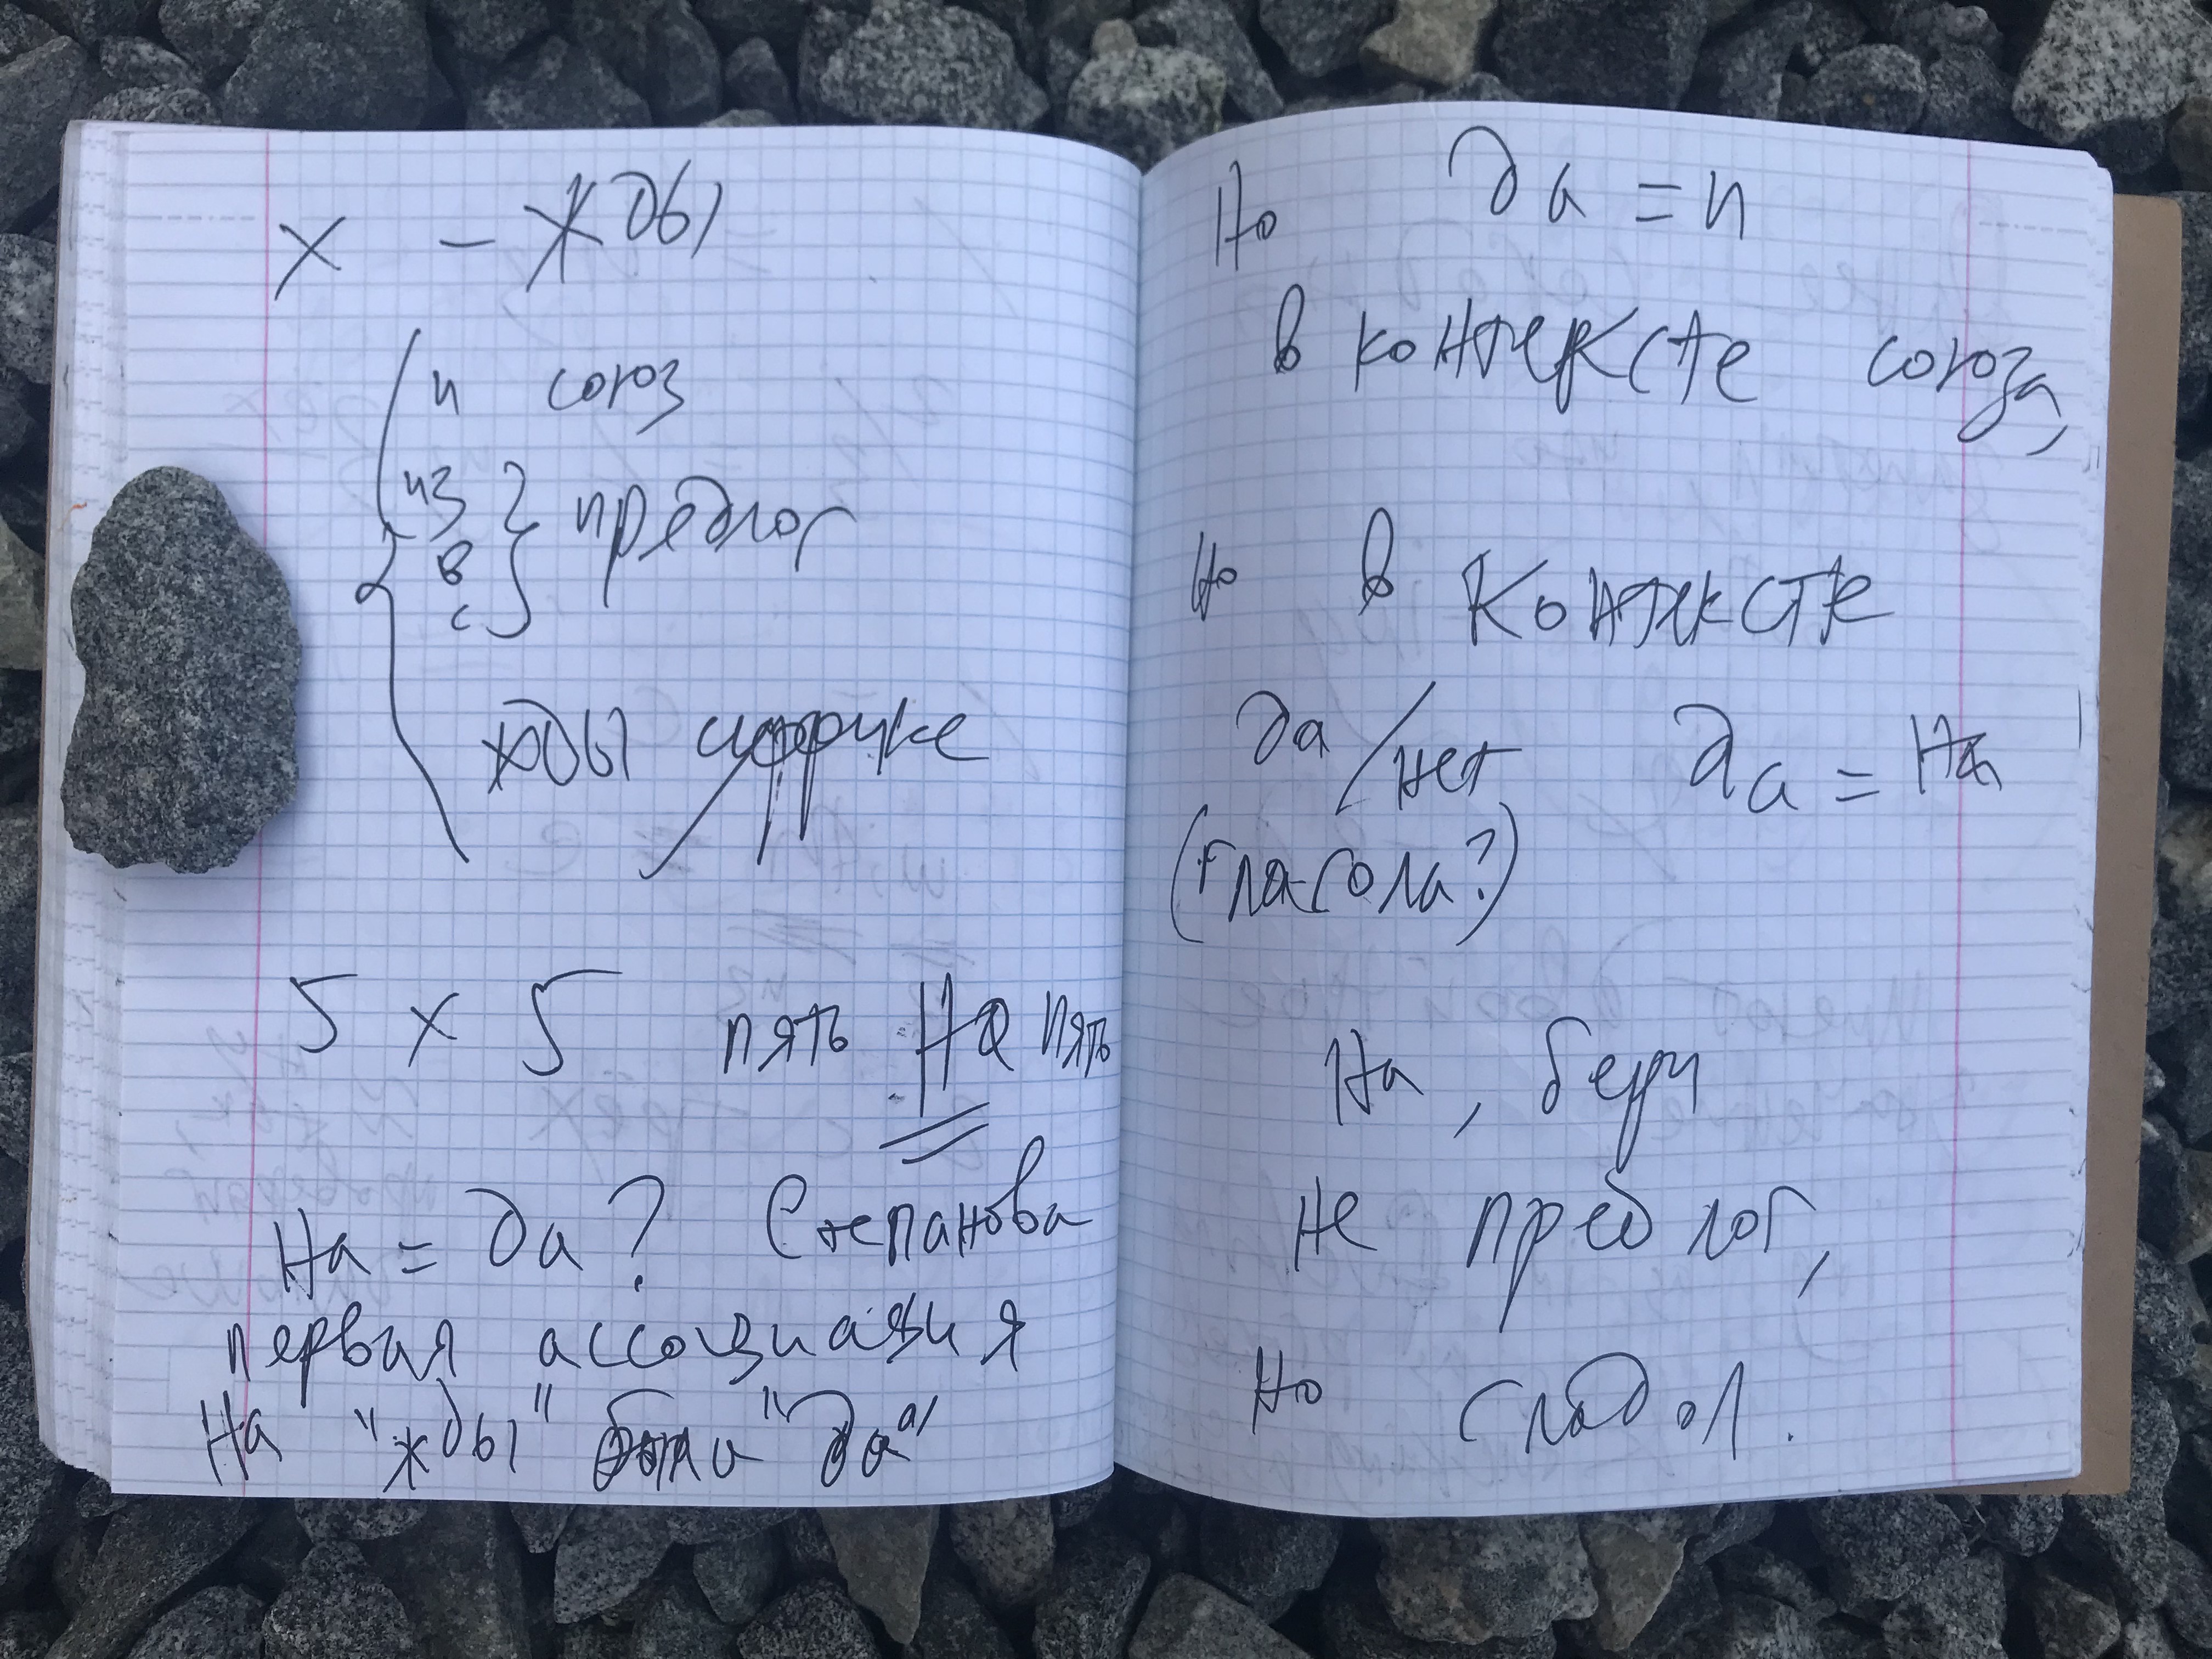 X - ЖДЫ
и союз
из
в
с
предлог
жды
5 x 5 пять на пять
На = да? Степанова
первая ассоциация
На "жды" было "да"
Но да = и
в контексте союза,
но в контексте
да/нет да = на
(глагола?)
На, бери
не предлог,
но глагол.